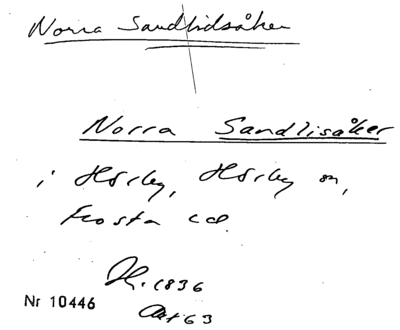 Norra Sandlidsåker
Norra Sandlisåker
i Hörby, Hörby sn,
Frosta hd.
1836
Nr 10446
Akt 63